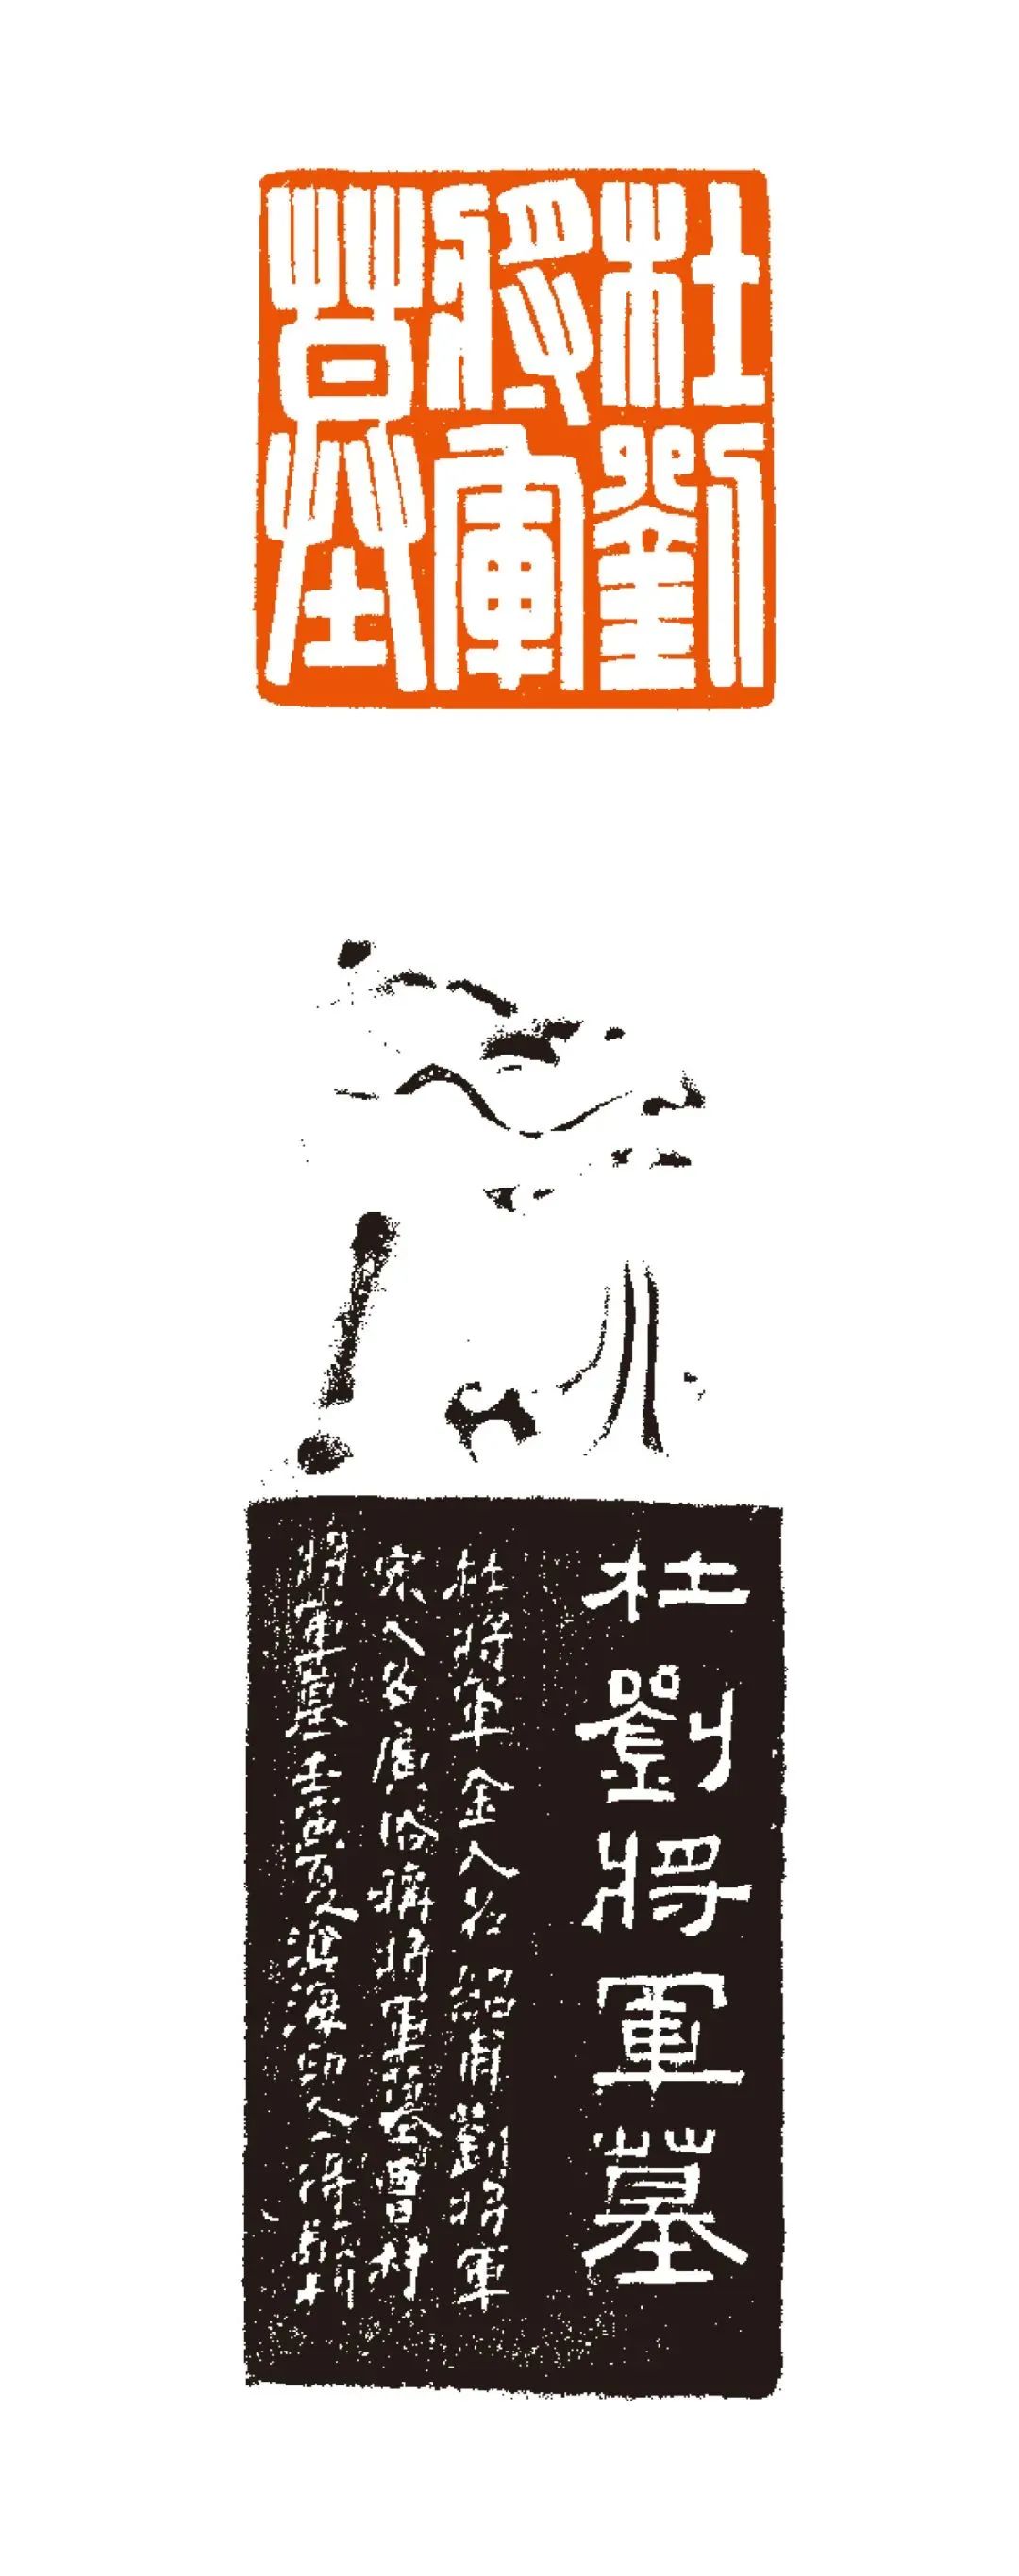 杜劉
將軍
墓
杜劉將軍墓
杜將軍金人名紹甫劉將軍
宋人名廣俗稱將軍墓曹村
將軍墓壬寅百人濱海印人得